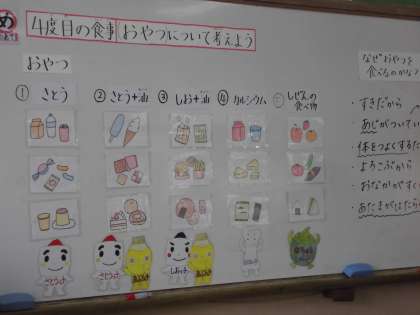 め
4度目の食事 おやつについて考えよう
おやつ
① さとう
② さとう+油
③ しお+油
④ カルシウム
しぜんの食べ物
なぜおやつを
食べるのかな
・すきだから
・あじがついてい
・体をつよくするた
・よろこぶから
・おなかがす
・あたまがはたら
さとうさ
さとうさ
しおっさ